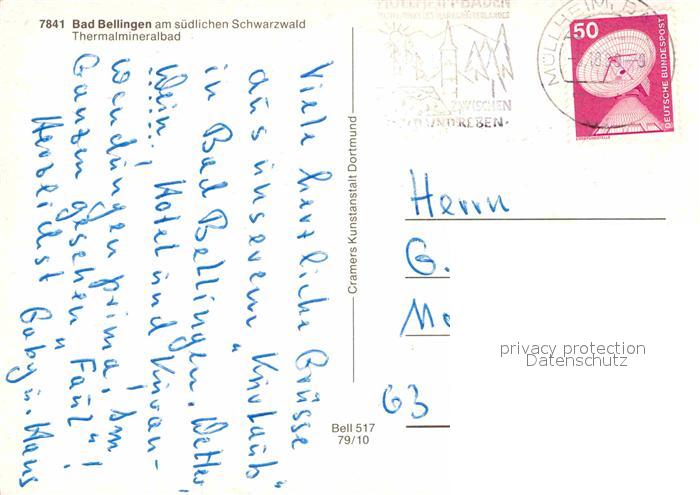 7841 Bad Bellingen am südlichen Schwarzwald
Thermalmineralbad
Viele herzliche Grüsse
aus unserem „Kurlaub"
in Bad Bellingen. Wetter,
Wein, Hotel und Kuran-
wendungen prima, Im
Ganzen gesehen „Faul"!
Herzlichst Gaby u. Hans
Cramers Kunstanstalt Dortmund
Bell 517
79/10
MÜLLHEIM, BADEN
ZWISCHEN
UND REBEN
MÜLLHEIM, BA
50
DEUTSCHE BUNDESPOST
Herrn
G.
63
privacy protection
Datenschutz